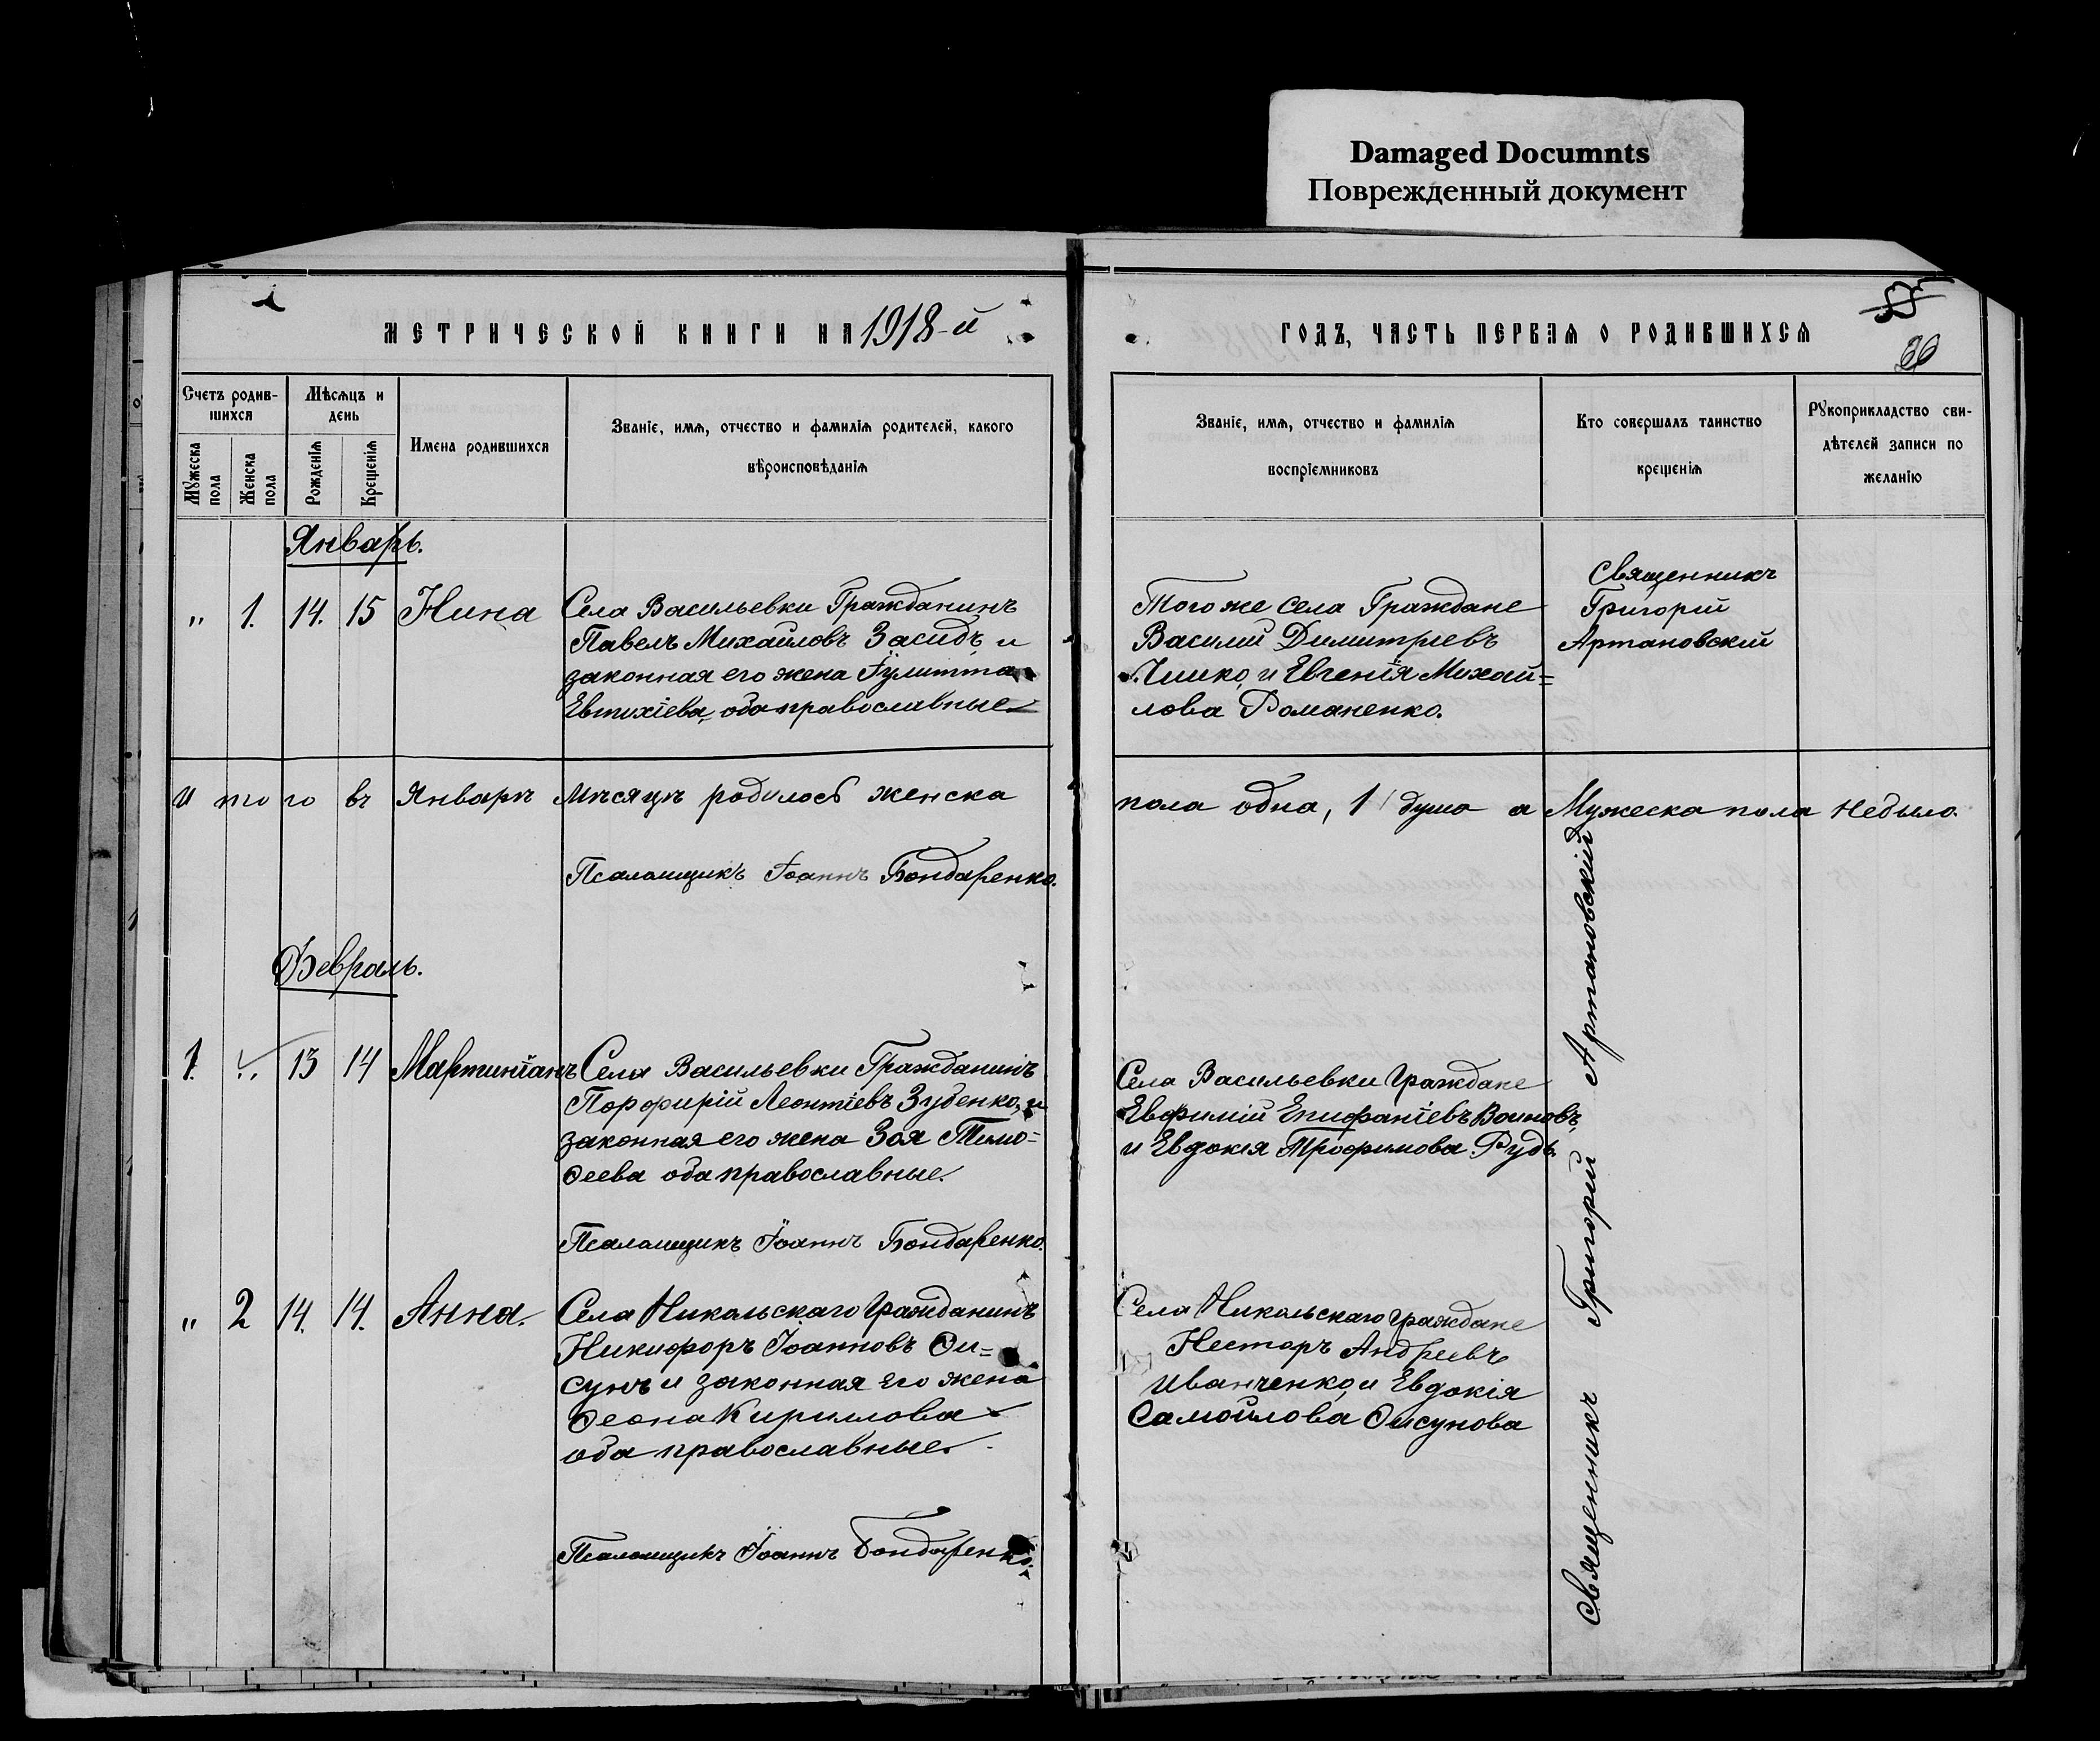 Damaged Documnts
Поврежденный документ
МЕТРИЧЕСКОЙ КНИГИ НА 1918-й
ГОДЪ, ЧАСТЬ ПЕРВАЯ О РОДИВШИХСЯ
Счетъ родив-
шихся
Мужеска
пола
Женска
пола
Мѣсяцъ и
день
Рожденія
Крещенія
Имена родившихся
Званіе, имя, отчество и фамилія родителей, какого
вѣроисповѣданія
Званіе, имя, отчество и фамилія
воспріемниковъ
Кто совершалъ таинство
крещенія
Рукоприкладство сви-
дѣтелей записи по
желанію
Январь.
„ 1. 14. 15 Нина
Села Васильевки Гражданинъ
Павелъ Михаиловъ Засидъ и
законная его жена Іулитта
Евтихіева, оба православные
Того же села Граждане
Василий Димитриевъ
Чишко, и Евгенія Михай=
лова Романенко.
Священникъ
Григорій
Артановскій
Итого въ Январѣ мѣсяцѣ родилось женска пола одна, 1 душа а Мужеска пола небыло.
Псаломщикъ Іоаннъ Бондаренко.
Февраль.
1. „ 13 14 Мартиніанъ
Села Васильевки Гражданинъ
Порфирій Леонтіевъ Зубенко, и
законная его жена Зоя Тимо=
ѳеева оба православные.
Села Васильевки Граждане
Евфимій Епифаніевъ Воиновъ,
и Евдокія Трофимова Рудь.
Псаломщикъ Іоаннъ Бондаренко.
„ 2 14. 14. Анна.
Села Никольскаго Гражданинъ
Никифоръ Іоанновъ Ѳи=
сунъ и законная его жена
Ѳеона Кириллова
оба православные.
Села Никольскаго Граждане
Несторъ Андреевъ
Иванченко, и Евдокія
Самойлова Ѳисунова
Псаломщикъ Іоаннъ Бондаренко.
Священникъ Григорій Артановскій